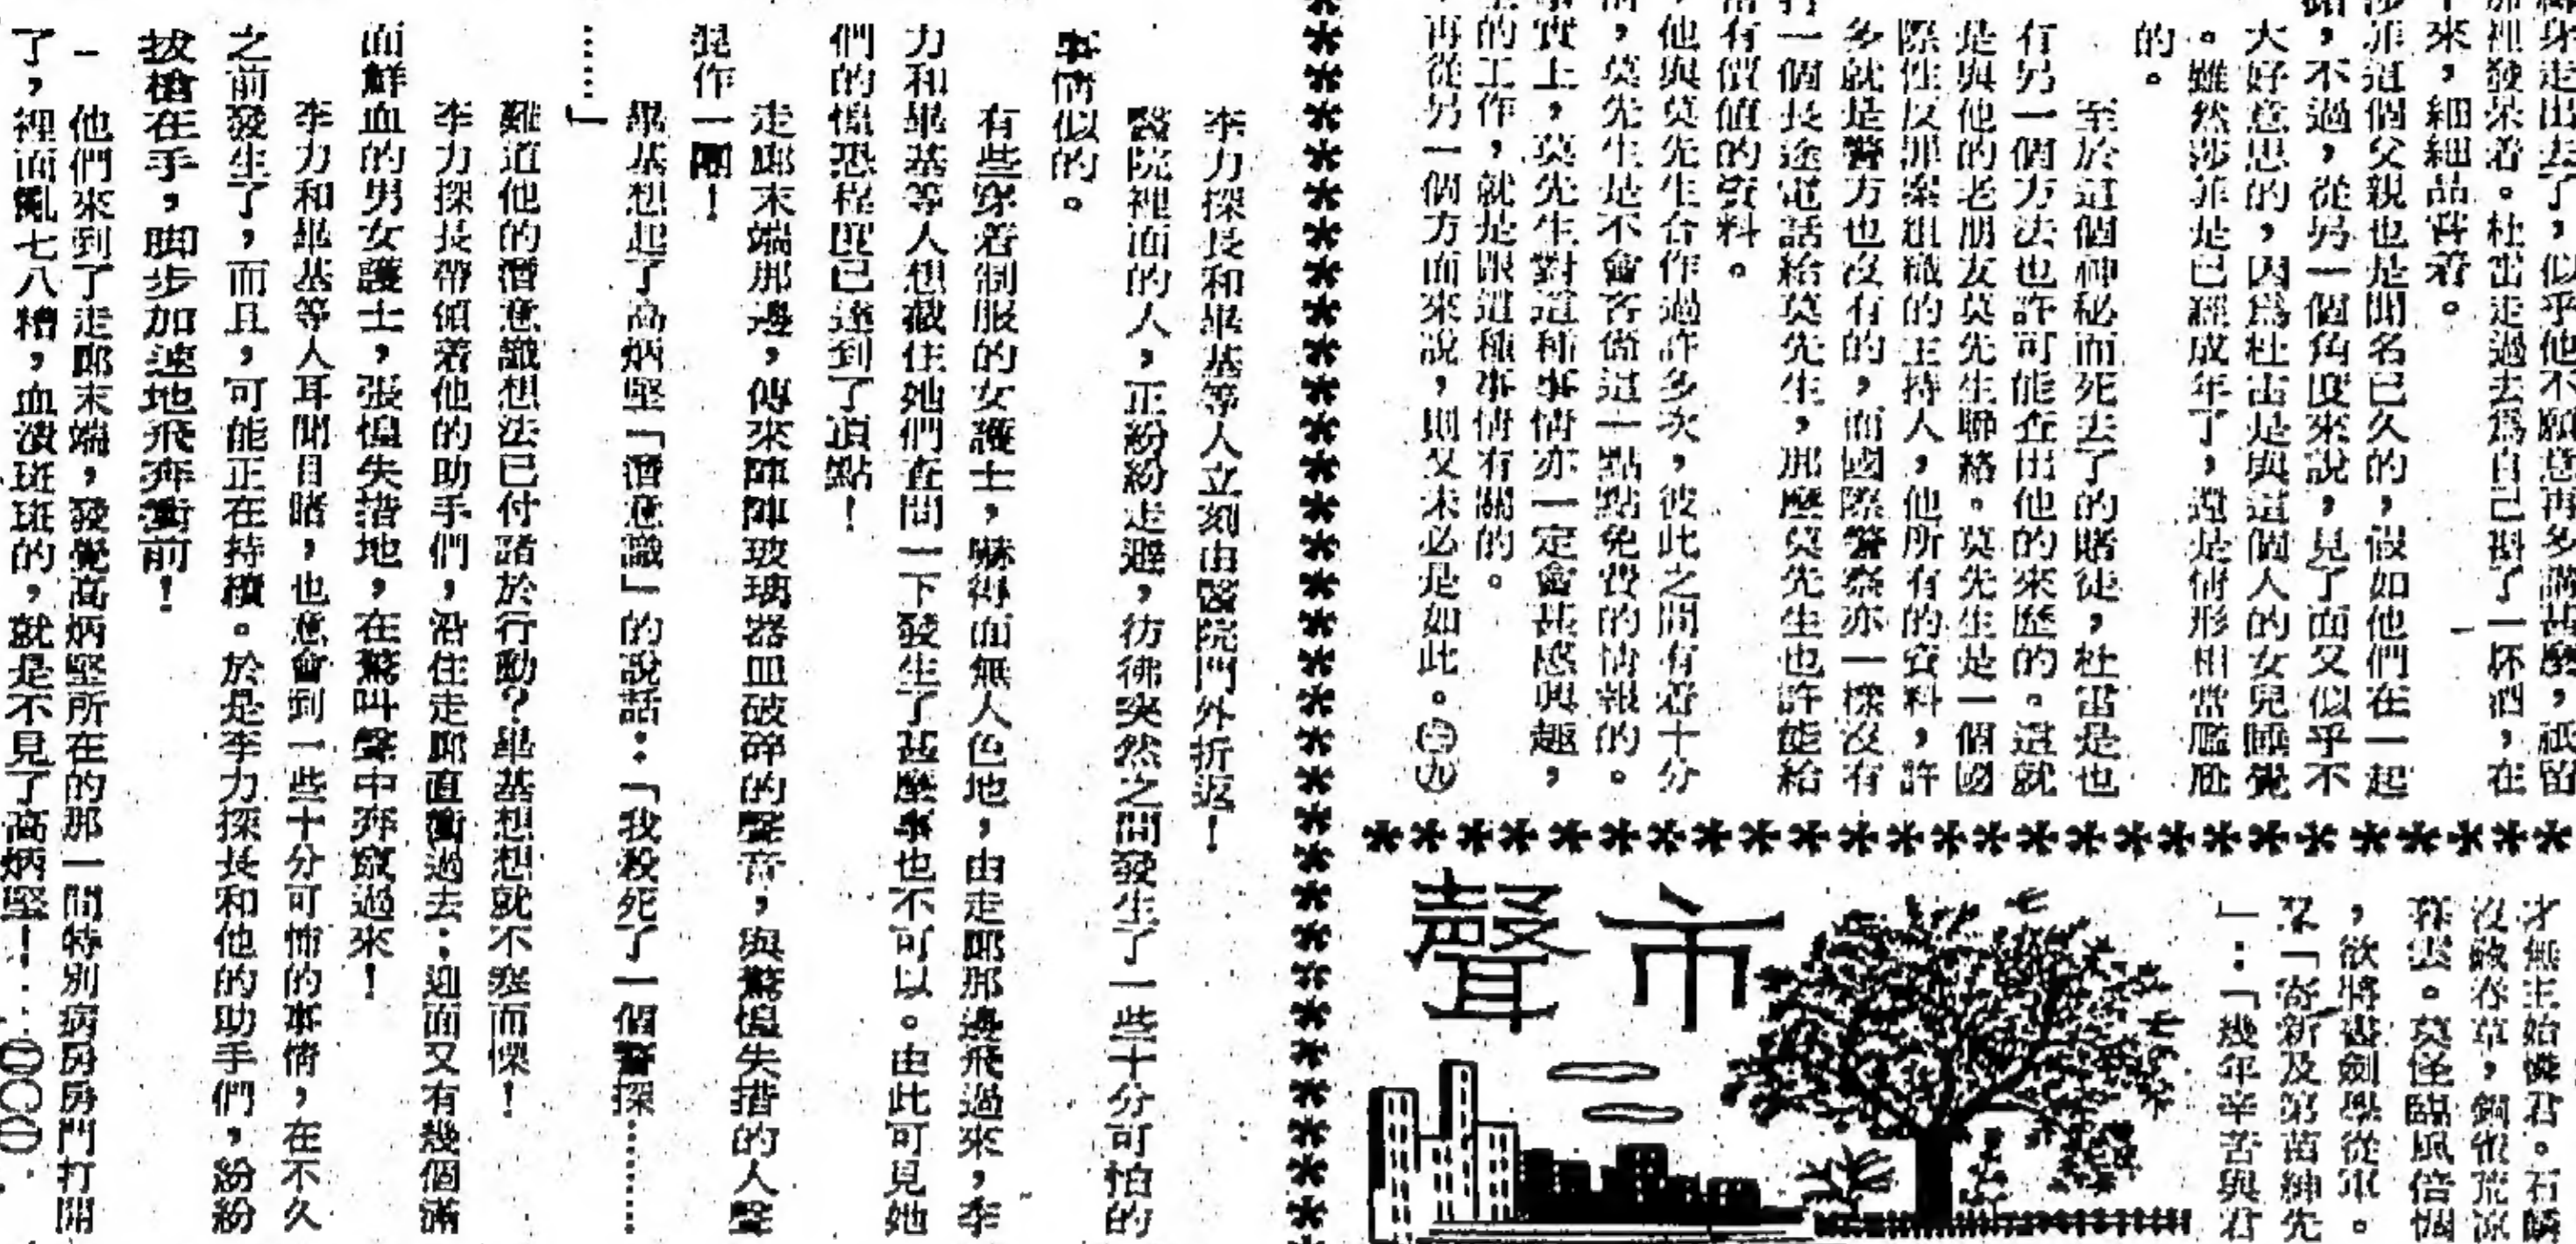 身走出去了，似乎他不願意再多講甚麼，祇留
那裡發呆着。杜雷走過去爲自己斟了一杯酒，在
來，細細品嘗着。
莎菲這個父親也是聞名已久的，假如他們在一起
賭，不過，從另一個角度來說，見了面又似乎不
大好意思的，因爲杜雷是與這個人的女兒睡覺
。雖然莎菲是已經成年了，還是情形相當尷尬
的。
至於這個神秘而死去了的賭徒，杜雷是也
有另一個方法也許可能查出他的來歷的。這就
是與他的老朋友莫先生聯絡。莫先生是一個國
際性反罪案組織的主持人，他所有的資料，許
多就是警方也沒有的，而國際警察亦一樣沒有
打一個長途電話給莫先生，那麼莫先生也許能給
當有價值的資料。
，他與莫先生合作過許多次，彼此之間有着十分
情，莫先生是不會吝嗇這一點點免費的情報的。
事實上，莫先生對這種事情亦一定會甚感興趣，
的工作，就是跟這種事情有關的。
再從另一個方面來說，則又未必是如此。
市聲
才無主始憐君。石麟
沒歲春草，銅雀荒涼
暮雲。莫怪臨風倍惆
，欲將書劍學從軍。
又「寄新及第苗紳先
」：「幾年辛苦與君
李力探長和畢基等人立刻由醫院門外折返！
醫院裡面的人，正紛紛走避，彷彿突然之間發生了一些十分可怕的
事情似的。
有些穿着制服的女護士，嚇得面無人色地，由走廊那邊飛過來，李
力和畢基等人想截住她們查問一下發生了甚麼事也不可以。由此可見她
們的惶恐程度已達到了頂點！
走廊末端那邊，傳來陣陣玻璃器皿破碎的聲音，與驚惶失措的人聲
混作一團！
畢基想起了高炳堅「潛意識」的說話：「我殺死了一個警探………
……」
難道他的潛意識想法已付諸於行動？畢基想想就不寒而慄！
李力探長帶領着他的助手們，沿住走廊直衝過去；迎面又有幾個滿
面鮮血的男女護士，張惶失措地，在驚叫聲中奔竄過來！
李力和畢基等人耳聞目睹，也意會到一些十分可怖的事情，在不久
之前發生了，而且，可能正在持續。於是李力探長和他的助手們，紛紛
拔槍在手，脚步加速地飛奔衝前！
他們來到了走廊末端，發覺高炳堅所在的那一間特別病房房門打開
了，裡面亂七八糟，血漬斑斑的，就是不見了高炳堅！